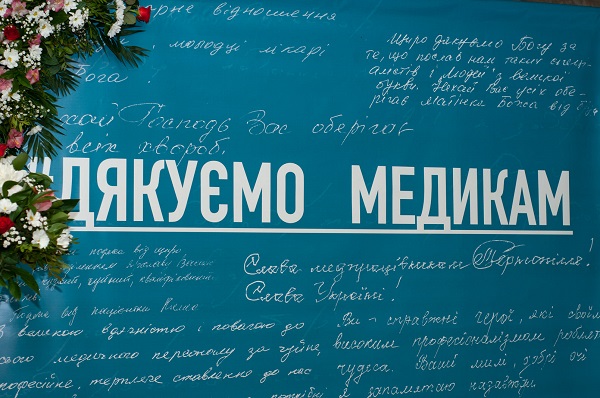 рне відношення
молодці лікарі
Бога!
хай Господь Вас оберігає
всіх хвороб.
Щиро дякуємо Богу за
те, що послав нам таких спеці-
алістів і Людей з великої
букви. Нехай Вас усіх обе-
рігає Матінка Божа від
#ДЯКУЄМО МЕДИКАМ
Слава медпрацівникам Тернопілля!
Слава Україні!
з великою вдячністю і повагою до
ього медичного персоналу за чуйне,
рофесійне, терпляче ставлення до нас
Ви - справжні герої, які своїм
високим професіоналізмом роблять
чудеса. Ваші милі, добрі очі
я запамятаю назавжди